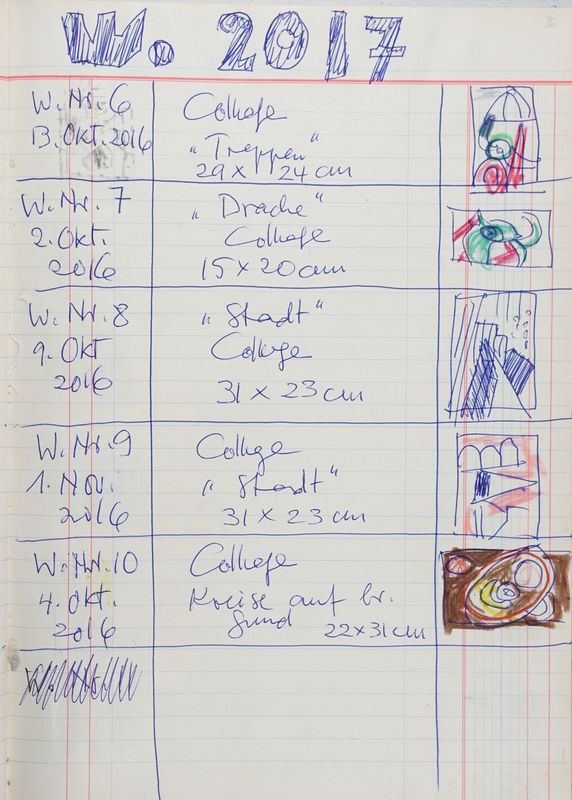 W. 2017
26
W. Nr. 6
13. Okt. 2016
Collage
"Treppen"
29 x 24 cm
W. Nr. 7
2. Okt.
2016
"Drache"
Collage
15 x 20 cm
W. Nr. 8
9. Okt
2016
"Stadt"
Collage
31 x 23 cm
W. Nr. 9
1. Nov.
2016
Collage
"Stadt"
31 x 23 cm
W. Nr. 10
4. Okt.
2016
Collage
Kreise auf br.
Grund 22x31cm